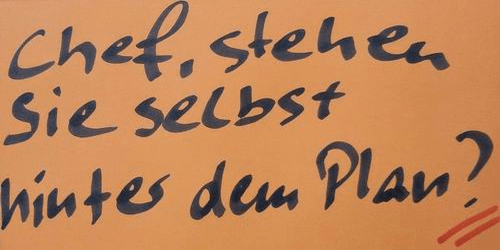 Chef, stehen
Sie selbst
hinter dem Plan?